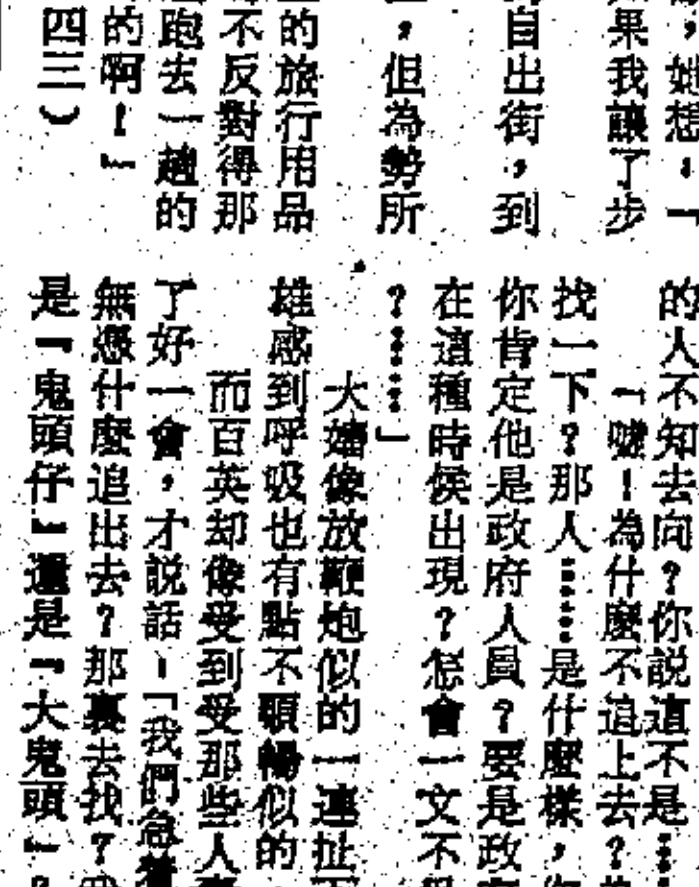 ，她想：「
果我讓了步
自出街，到
，但為勢所
的旅行用品
不反對得那
跑去一趟的
的啊！」
四三）
的人不知去向？你說這不是…
「噓！為什麼不追上去？
找一下？那人……是什麼樣，
你肯定他是政府人員？要是政
在這種時候出現？怎會一文不
？……」
大嬸像放鞭炮似的一連扯
雄感到呼吸也有點不順暢似的
而百英却像受到受那些人
了好一會，才說話－「我們急着
無憑什麼追出去？那裏去找？
是「鬼頭仔」還是「大鬼頭」